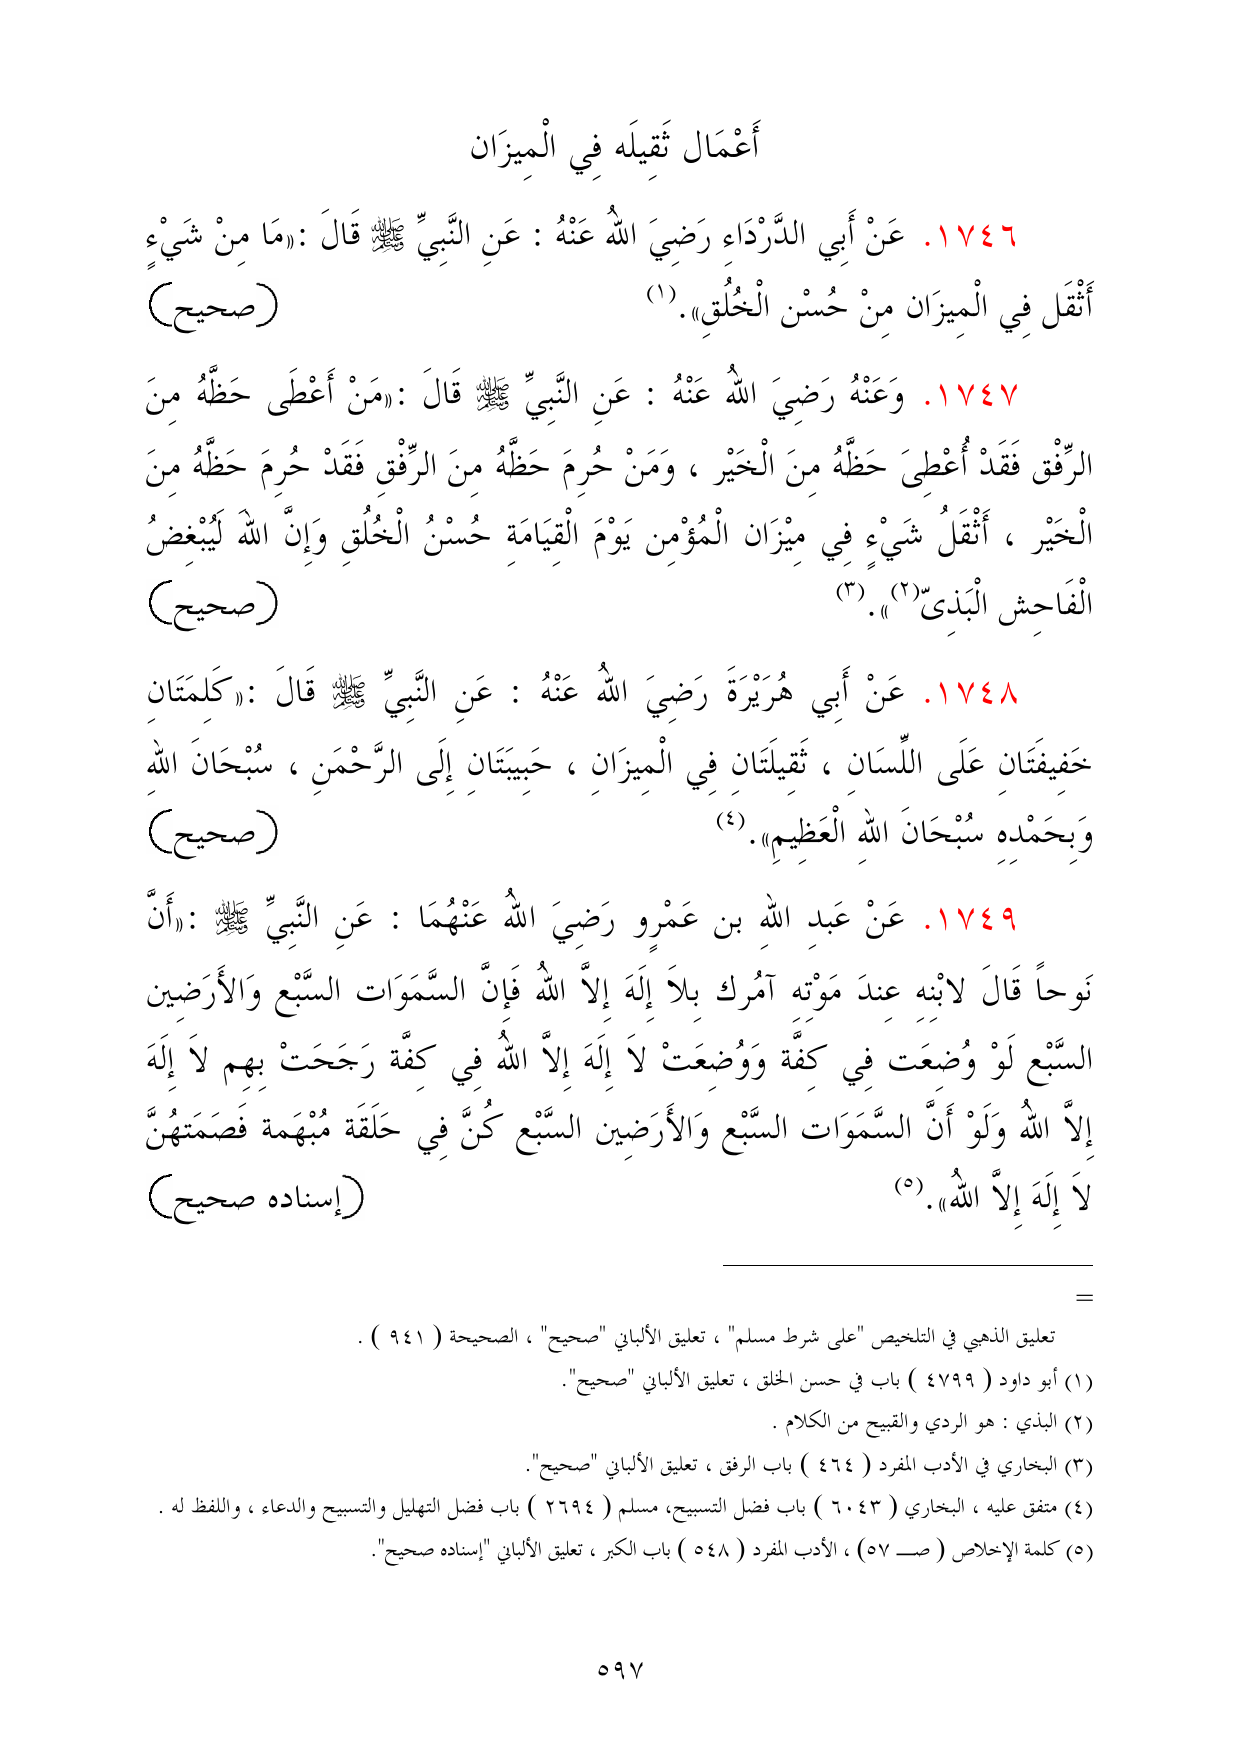 أَعْمَال ثَقِيلَه فِي الْمِيزَان
١٧٤٦. عَنْ أَبِي الدَّرْدَاءِ رَضِيَ اللهُ عَنْهُ : عَنِ النَّبِيِّ ﷺ قَالَ :«مَا مِنْ شَيْءٍ
أَثْقَل فِي الْمِيزَان مِنْ حُسْن الْخُلُقِ».(١) (صحيح)
١٧٤٧. وَعَنْهُ رَضِيَ اللهُ عَنْهُ : عَنِ النَّبِيِّ ﷺ قَالَ :«مَنْ أَعْطَى حَظَّهُ مِنَ
الرِّفْق فَقَدْ أُعْطِىَ حَظَّهُ مِنَ الْخَيْر ، وَمَنْ حُرِمَ حَظَّهُ مِنَ الرِّفْقِ فَقَدْ حُرِمَ حَظَّهُ مِنَ
الْخَيْر ، أَثْقَلُ شَيْءٍ فِي مِيْزَان الْمُؤْمِن يَوْمَ الْقِيَامَةِ حُسْنُ الْخُلُقِ وَإِنَّ اللهَ لَيُبْغِضُ
الْفَاحِش الْبَذِىّ(٢)».(٣) (صحيح)
١٧٤٨. عَنْ أَبِي هُرَيْرَةَ رَضِيَ اللهُ عَنْهُ : عَنِ النَّبِيِّ ﷺ قَالَ :«كَلِمَتَانِ
خَفِيفَتَانِ عَلَى اللِّسَانِ ، ثَقِيلَتَانِ فِي الْمِيزَانِ ، حَبِيبَتَانِ إِلَى الرَّحْمَنِ ، سُبْحَانَ اللهِ
وَبِحَمْدِهِ سُبْحَانَ اللهِ الْعَظِيمِ».(٤) (صحيح)
١٧٤٩. عَنْ عَبدِ اللهِ بن عَمْرٍو رَضِيَ اللهُ عَنْهُمَا : عَنِ النَّبِيِّ ﷺ :«أَنَّ
نَوحاً قَالَ لابْنِهِ عِندَ مَوْتِهِ آمُرك بِلاَ إِلَهَ إِلاَّ اللهُ فَإِنَّ السَّمَوَات السَّبْع وَالأَرَضِين
السَّبْع لَوْ وُضِعَت فِي كِفَّة وَوُضِعَتْ لاَ إِلَهَ إِلاَّ اللهُ فِي كِفَّة رَجَحَتْ بِهِم لاَ إِلَهَ
إِلاَّ اللهُ وَلَوْ أَنَّ السَّمَوَات السَّبْع وَالأَرَضِين السَّبْع كُنَّ فِي حَلَقَة مُبْهَمة فَصَمَتهُنَّ
لاَ إِلَهَ إِلاَّ اللهُ».(٥) (إسناده صحيح)
=
تعليق الذهبي في التلخيص "على شرط مسلم" ، تعليق الألباني "صحيح" ، الصحيحة ( ٩٤١ ) .
(١) أبو داود ( ٤٧٩٩ ) باب في حسن الخلق ، تعليق الألباني "صحيح".
(٢) البذي : هو الردي والقبيح من الكلام .
(٣) البخاري في الأدب المفرد ( ٤٦٤ ) باب الرفق ، تعليق الألباني "صحيح".
(٤) متفق عليه ، البخاري ( ٦٠٤٣ ) باب فضل التسبيح، مسلم ( ٢٦٩٤ ) باب فضل التهليل والتسبيح والدعاء ، واللفظ له .
(٥) كلمة الإخلاص ( صـــ ٥٧) ، الأدب المفرد ( ٥٤٨ ) باب الكبر ، تعليق الألباني "إسناده صحيح".
٥٩٧